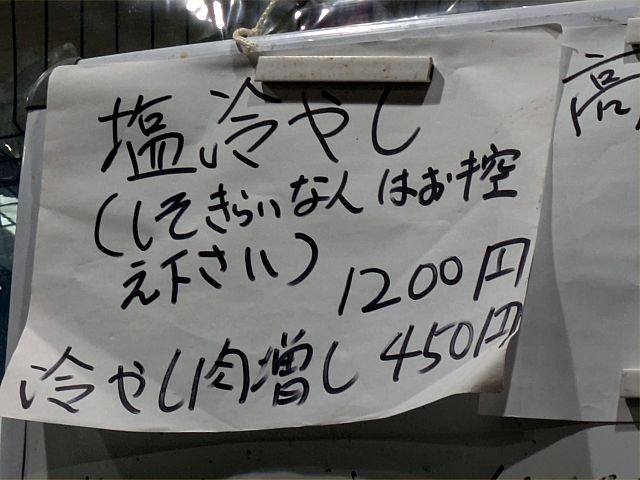 塩冷やし
(しそきらいな人はお控
え下さい) 1200円
冷やし肉増し 450円
高